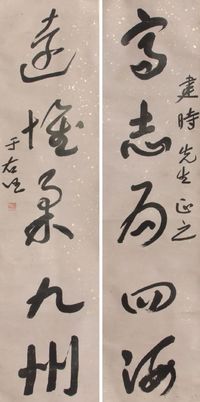 建時先生正之
高志局四海
遠懷柔九州
于右任